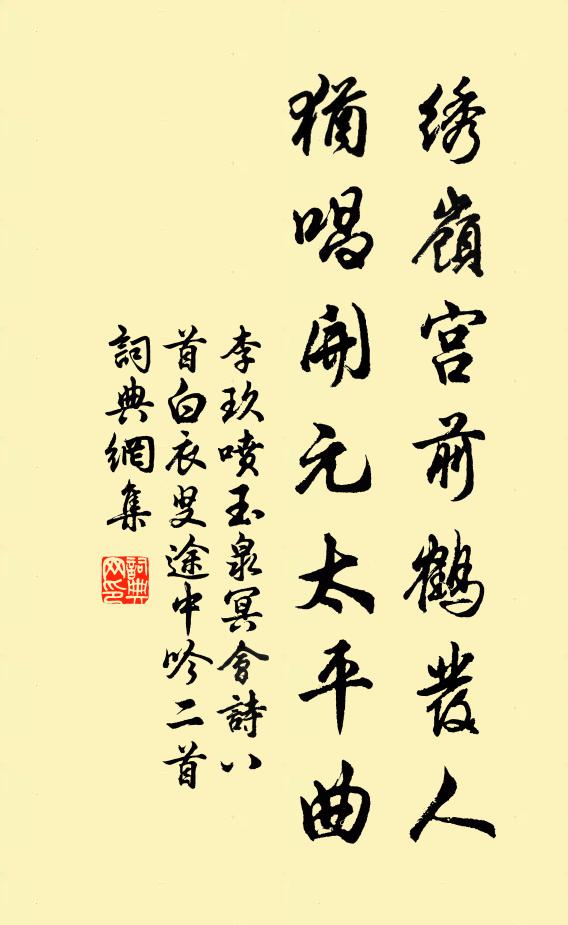 绣嶺宫前鶴髮人
猶唱開元太平曲
李玖噴玉泉冥會詩八
首白衣叟途中吟二首
詞典網集
詞典网印